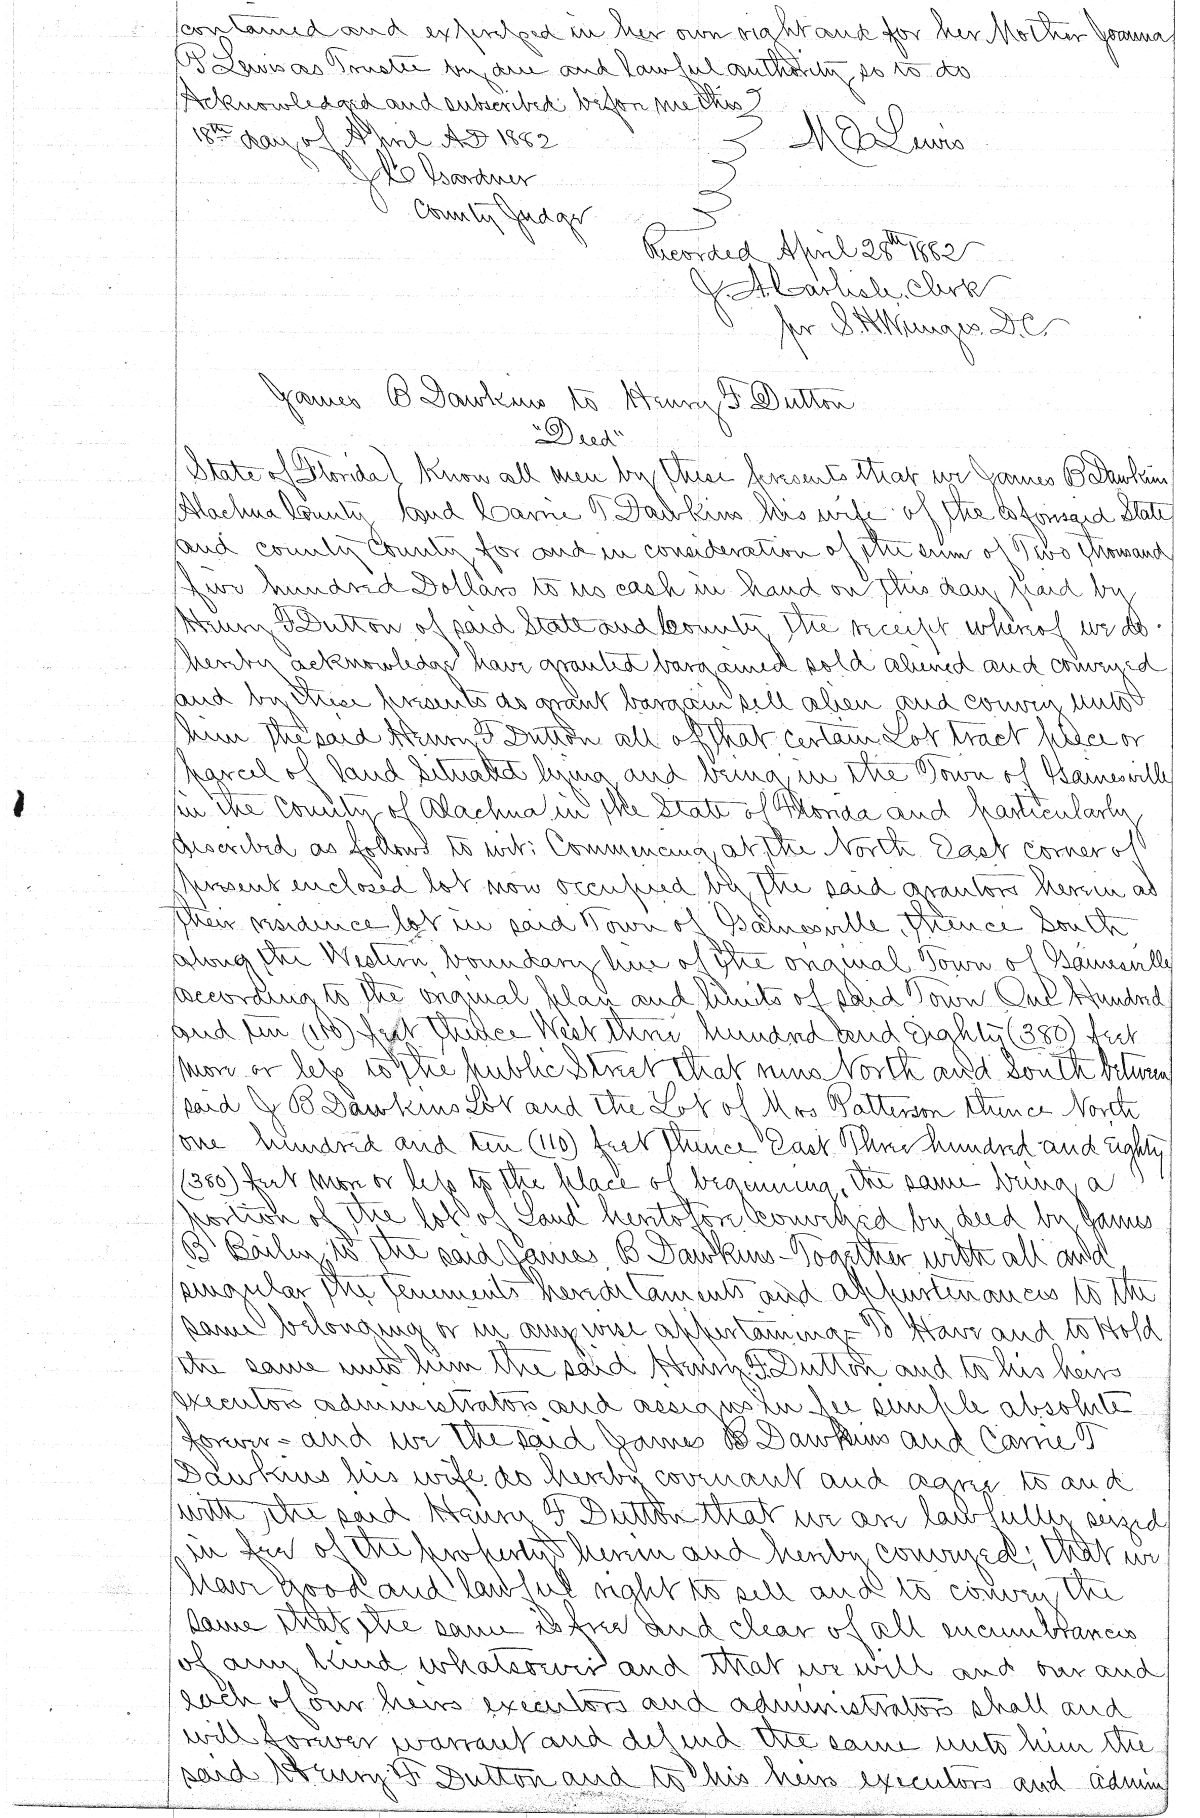 contained and expressed in her own right and for her Mother Joanna
B Lewis as Trustee by due and lawful authority so to do
Acknowledged and subscribed before me this
18th day of April AD 1882 M E Lewis
J C Gardner
County Judge
Recorded April 28th 1882
J. A. Carlisle, Clerk
pr S. H. Wienges D.C.
James B Dawkins to Henry F Dutton
"Deed"
State of Florida) Know all men by these presents that we James B Dawkins
Alachua County (and Carrie T Dawkins his wife of the aforesaid State
and county County for and in consideration of the sum of Two thousand
five hundred Dollars to us cash in hand on this day paid by
Henry F Dutton of said State and County the receipt whereof we do
hereby acknowledge have granted bargained sold aliened and conveyed
and by these presents do grant bargain sell alien and convey unto
him the said Henry F Dutton all of that certain Lot tract piece or
parcel of land Situated lying and being in the Town of Gainesville
in the County of Alachua in the State of Florida and particularly
described as follows to wit: Commencing at the North East corner of
present enclosed lot now occupied by the said grantors herein as
their residence lot in said Town of Gainesville, thence South
along the Western boundary line of the original Town of Gainesville
according to the original plan and limits of said Town One Hundred
and ten (110) feet thence West three hundred and Eighty (380) feet
more or less to the public Street that runs North and South between
said J B Dawkins Lot and the Lot of Mrs Patterson thence North
one hundred and ten (110) feet thence East Three hundred and Eighty
(380) feet more or less to the place of beginning, the same being a
portion of the lot of Land heretofore conveyed by deed by James
B Bailey to the said James B Dawkins - Together with all and
singular the tenements hereditaments and appurtenances to the
same belonging or in anywise appertaining - To Have and to Hold
the same unto him the said Henry F Dutton and to his heirs
executors administrators and assigns in fee simple absolute
forever - and we the said James B Dawkins and Carrie T
Dawkins his wife do hereby covenant and agree to and
with the said Henry F Dutton that we are lawfully seized
in fee of the property herein and hereby conveyed; that we
have good and lawful right to sell and to convey the
same that the same is free and clear of all encumbrances
of any kind whatsoever and that we will and our and
each of our heirs executors and administrators shall and
will forever warrant and defend the same unto him the
said Henry F Dutton and to his heirs executors and admin